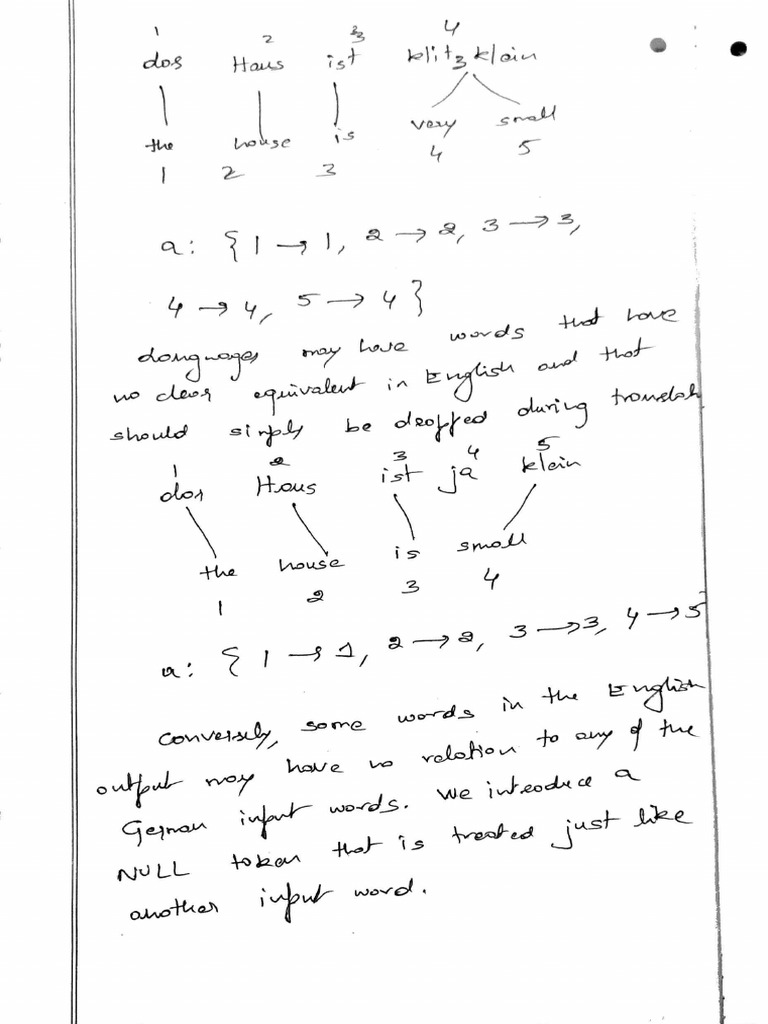 1 2 3 4
das Haus ist klitzklein
the house is very small
1 2 3 4 5
a: {1 → 1, 2 → 2, 3 → 3,
4 → 4, 5 → 4}
Languages may have words that have
no clear equivalent in English and that
should simply be dropped during translat
1 2 3 4 5
das Haus ist ja klein
the house is small
1 2 3 4
a: {1 → 1, 2 → 2, 3 → 3, 4 → 5
Conversely, some words in the English
output may have no relation to any of the
German input words. We introduce a
NULL token that is treated just like
another input word.